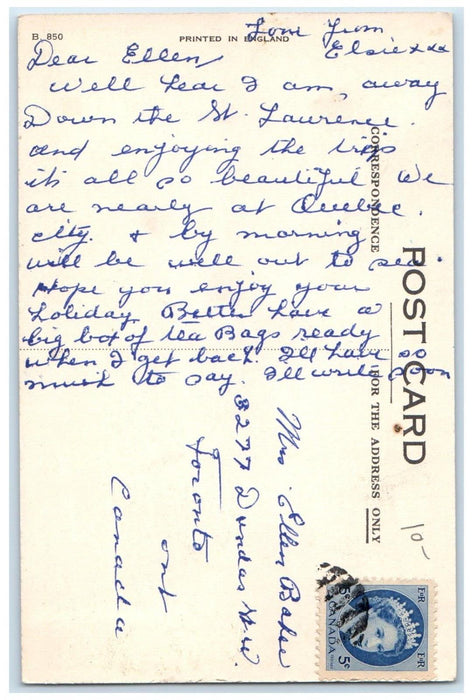 B. 850
PRINTED IN ENGLAND
Love from
Elsie xxx
Dear Ellen
Well hear I am, away
Down the St. Laurence.
and enjoying the trip
it's all so beautiful We
are nearly at Quebec.
city. & by morning
will be well out to sea.
Hope you enjoy your
Holiday Better have a
big box of tea Bags ready
when I get back. I'll have so
much to say. I'll write soon
CORRESPONDENCE
POST CARD
FOR THE ADDRESS ONLY
Mrs Ellen
3277 Dundas St. W.
Toronto
ont
Canada
10-
E II R
E II R
5¢
CANADA
5¢